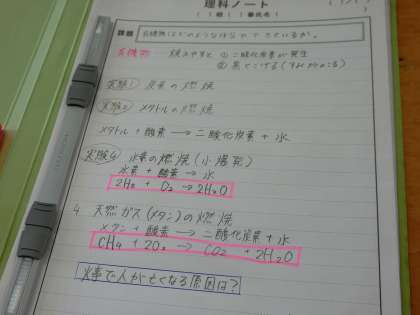 理科ノート
課題 有機物はどのような成分でできているか。
有機物 燃やすと ① 二酸化炭素が発生
② 黒くこげる(すみがのこる)
実験① 炭素の燃焼
実験② メタノールの燃焼
メタノール + 酸素 → 二酸化炭素 + 水
実験④ 水素の燃焼(小爆発)
水素 + 酸素 → 水
2H2 + O2 → 2H2O
4. 天然ガス(メタン)の燃焼
メタン + 酸素 → 二酸化炭素 + 水
CH4 + 2O2 → CO2 + 2H2O
火事で人が亡くなる原因は?